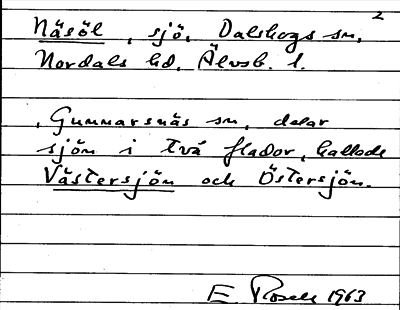 2
Näsöl, sjö, Dalskogs sn,
Nordals hd. Älvsb. l.
, Gunnarsnäs sn, delar
sjön i två flador, kallade
Västersjön och Östersjön.
E 1963